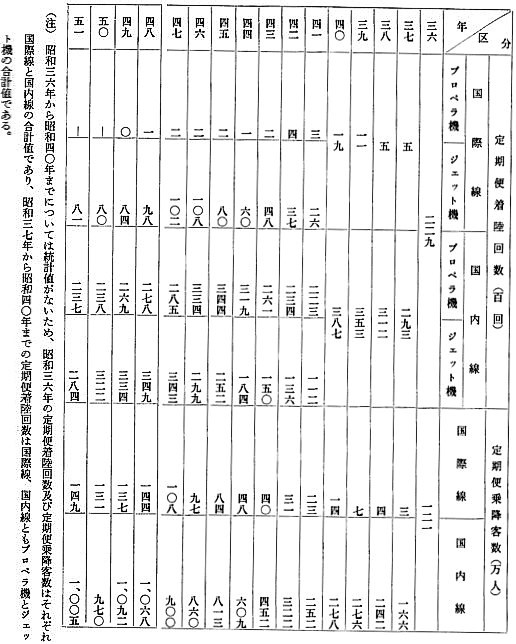 区分
年
定期便着陸回数（百回） 定期便乗降客数（万人）
国際線 国内線 国際線 国内線
プロペラ機 ジェット機 プロペラ機 ジェット機
三六 二二九 一二一
三七 五 二九三 三 一六六
三八 五 三一二 四 二四二
三九 一一 三五三 七 二七六
四〇 一九 三八七 一四 二七八
四一 三 二六 二二三 一一二 二三 二五二
四二 四 三七 二三四 一三六 三一 三二二
四三 二 四八 二六一 一五〇 四〇 四五二
四四 一 六〇 三一九 一八四 四八 六〇九
四五 二 八〇 三四四 二五二 八四 八一三
四六 二 一〇八 三三四 二九九 九七 八六〇
四七 二 一〇二 二八五 三四三 一〇八 九〇〇
四八 一 九八 二七八 三四九 一四四 一、〇六八
四九 〇 八四 二六九 三三四 一三七 一、〇九二
五〇 ― 八〇 二三八 三二二 一三一 九七〇
五一 ― 八一 二三七 二八四 一四九 一、〇〇五
（注） 昭和三六年から昭和四〇年までについては統計値がないため、昭和三六年の定期便着陸回数及び定期便乗降客数はそれぞれ
国際線と国内線の合計値であり、昭和三七年から昭和四〇年までの定期便着陸回数は国際線、国内線ともプロペラ機とジェッ
ト機の合計値である。